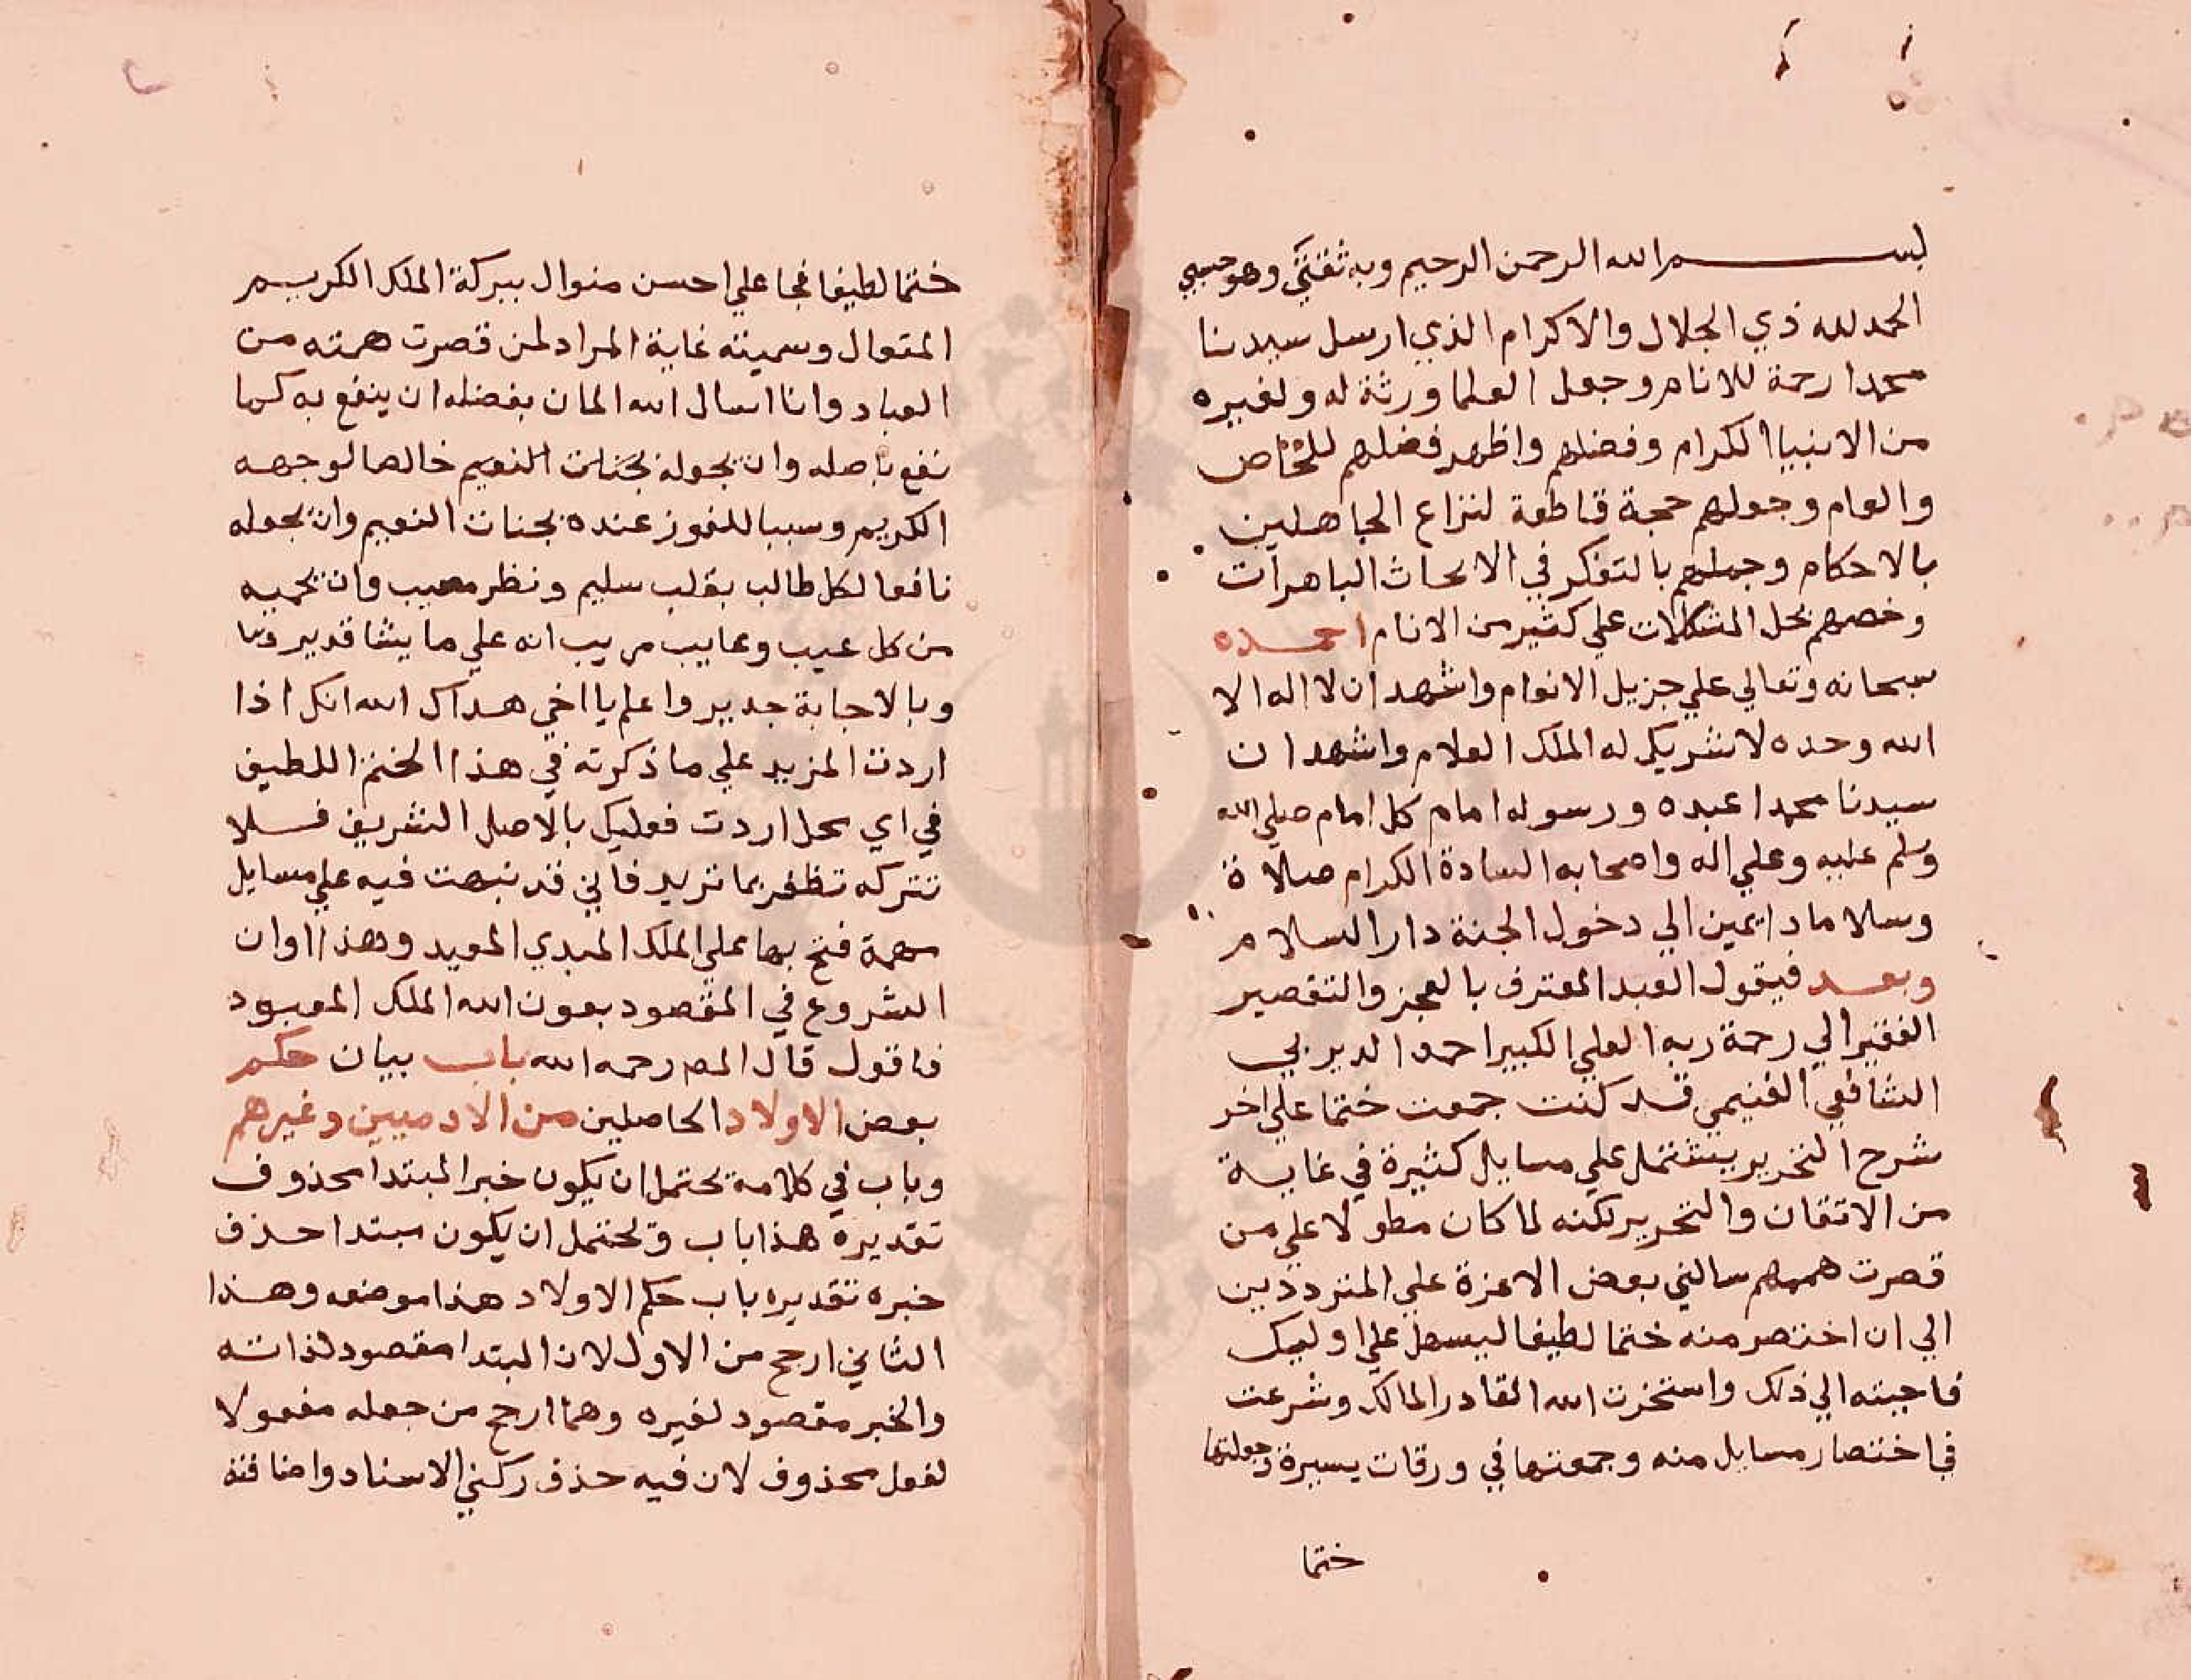 بسم الله الرحمن الرحيم وبه ثقتي وهو حسبي
الحمد لله ذي الجلال والاكرام الذي ارسل سيدنا
محمدا رحمة للانام وجعل العلما ورثة له ولغيره
من الانبيا الكرام وفضلهم واظهر فضلهم للخاص
والعام وجعلهم حجة قاطعة لنزاع الجاهلين
بالاحكام وجملهم بالتفكر في الابحاث الباهرات
وخصهم بحل المشكلات علي كثير من الانام احمده
سبحانه وتعالي علي جزيل الانعام واشهد ان لا اله الا
الله وحده لا شريك له الملك العلام واشهد ان
سيدنا محمدا عبده ورسوله امام كل امام صلي الله
وسلم عليه وعلي اله واصحابه السادة الكرام صلاة
وسلاما دايمين الي دخول الجنة دار السلام
وبعد فيقول العبد المعترف بالعجز والتقصير
الفقير الي رحمة ربه العلي الكبير احمد الديربي
الشافعي الغنيمي قد كنت جمعت ختما علي اخر
شرح التحرير يشتمل علي مسايل كثيرة في غاية
من الاتقان والتحرير لكنه لما كان مطولا علي من
قصرت هممهم سالني بعض الاعزة علي المترددين
الي ان اختصر منه ختما لطيفا ليسهل علي اوليك
فاجبته الي ذلك واستخرت الله القادر المالك وشرعت
في اختصار مسايل منه وجمعتها في ورقات يسيرة وجعلتها
ختما
ختما لطيفا فجا علي احسن منوال ببركة الملك الكريم
المتعال وسميته غاية المراد لمن قصرت همته من
العباد وانا اسال الله المان بفضله ان ينفع به كما
نفع باصله وان يجعله بجنات النعيم خالصا لوجهه
الكريم وسببا للفوز عنده بجنات النعيم وان يجعله
نافعا لكل طالب بقلب سليم ونظر مصيب وان يحميه
من كل عيب وعايب مريب انه علي ما يشا قدير
وبالاجابة جدير واعلم يا اخي هداك الله انك اذا
اردت المزيد علي ما ذكرته في هذا الختم اللطيف
في اي محل اردت فعليك بالاصل الشريف فلا
تتركه تظفر بما تريد فاني قد نبهت فيه علي مسايل
مهمة فتح بها علي الملك المبدي المعيد وهذا اوان
الشروع في المقصود بعون الله الملك المعبود
فاقول قال المص رحمه الله باب بيان حكم
بعض الاولاد الحاصلين من الادميين وغيرهم
وباب في كلامه يحتمل ان يكون خبر المبتدا محذوف
تقديره هذا باب ويحتمل ان يكون مبتدا حذف
خبره تقديره باب حكم الاولاد هذا موضعه وهذا
الثاني ارجح من الاول لان المبتدا مقصود لذاته
والخبر مقصود لغيره وهما ارجح من جعله مفعولا
لفعل محذوف لان فيه حذف ركني الاسناد واضافته